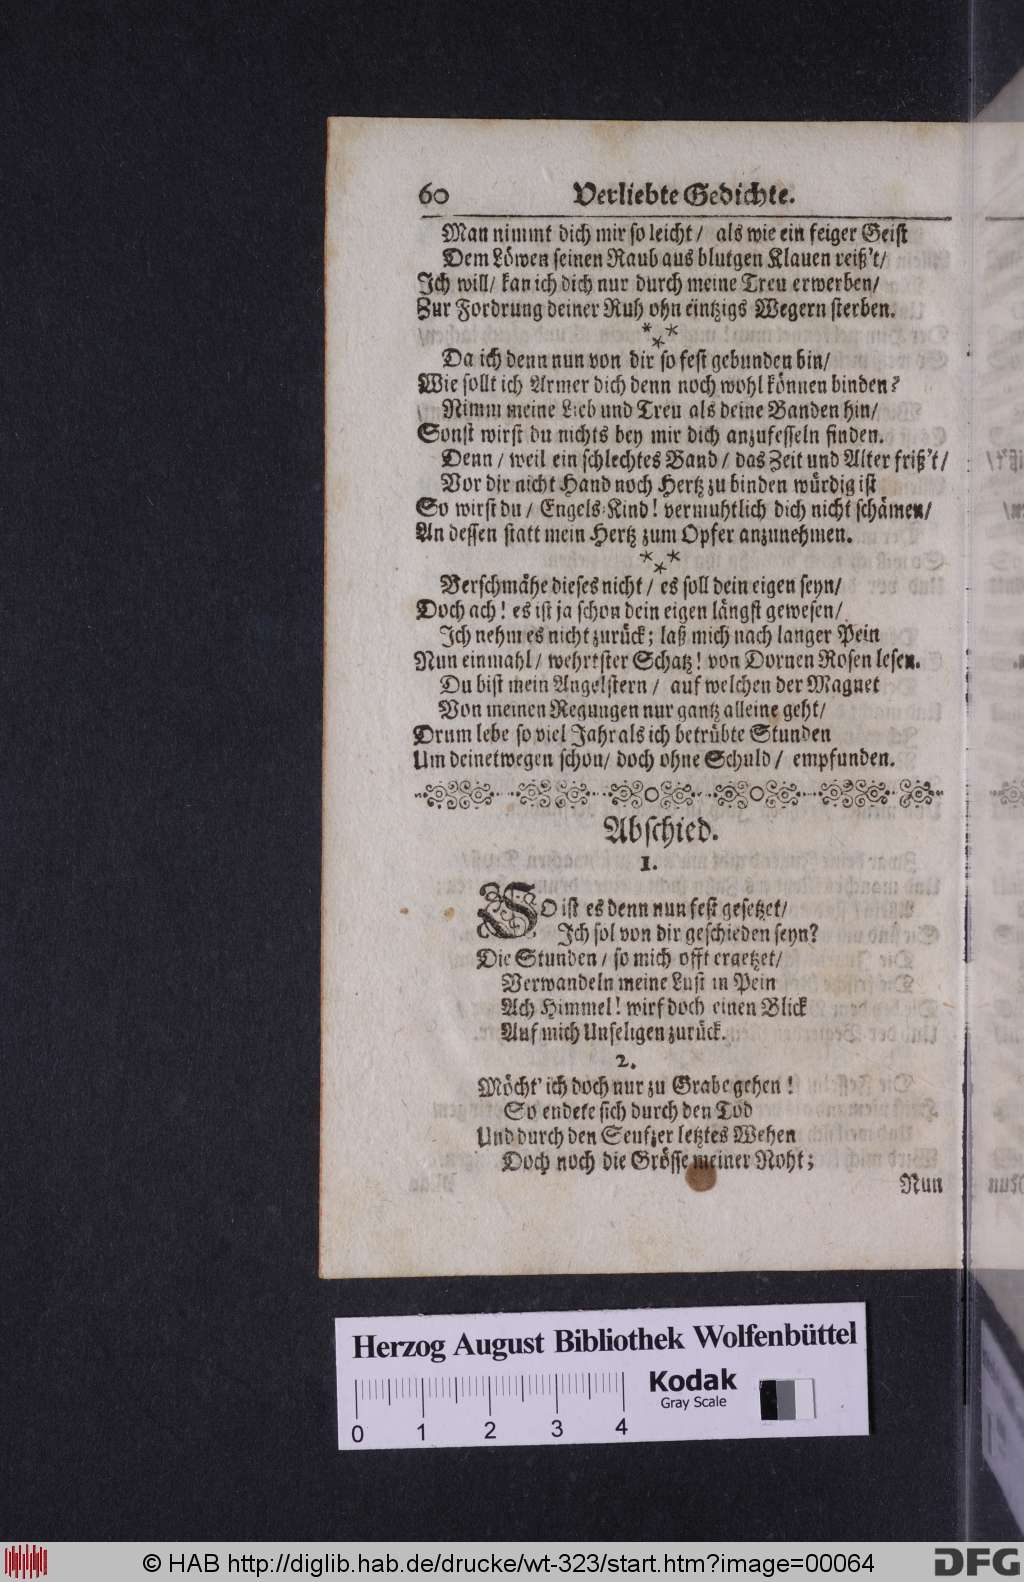 60 Verliebte Gedichte.
Man nimmt dich mir so leicht / als wie ein feiger Geist
Dem Löwen seinen Raub aus blutgen Klauen reiß't /
Ich will / kan ich dich nur durch meine Treu erwerben /
Zur Fordrung deiner Ruh ohn eintzigs Wegern sterben.
***
Da ich denn nun von dir so fest gebunden bin /
Wie sollt ich Armer dich denn noch wohl können binden?
Nimm meine Lieb und Treu als deine Banden hin /
Sonst wirst du nichts bey mir dich anzufesseln finden.
Denn / weil ein schlechtes Band / das Zeit und Alter friß't /
Vor dir nicht Hand noch Hertz zu binden würdig ist
So wirst du / Engels-Kind! vermuhtlich dich nicht schämen /
An dessen statt mein Hertz zum Opfer anzunehmen.
***
Verschmähe dieses nicht / es soll dein eigen seyn /
Doch ach! es ist ja schon dein eigen längst gewesen /
Ich nehm es nicht zurück; laß mich nach langer Pein
Nun einmahl / wehrtster Schatz! von Dornen Rosen lesen.
Du bist mein Angelstern / auf welchen der Magnet
Von meinen Regungen nur gantz alleine geht /
Drum lebe so viel Jahr als ich betrübte Stunden
Um deinetwegen schon / doch ohne Schuld / empfunden.
Abschied.
1.
SO ist es denn nun fest gesetzet /
Ich sol von dir geschieden seyn?
Die Stunden / so mich offt ergetzet /
Verwandeln meine Lust in Pein
Ach Himmel! wirf doch einen Blick
Auf mich Unseligen zurück.
2.
Möcht' ich doch nur zu Grabe gehen!
So endete sich durch den Tod
Und durch den Seufzer letztes Wehen
Doch noch die Grösse meiner Noht;
Nun
Herzog August Bibliothek Wolfenbüttel
Kodak
Gray Scale
0 1 2 3 4
© HAB http://diglib.hab.de/drucke/wt-323/start.htm?image=00064
DFG